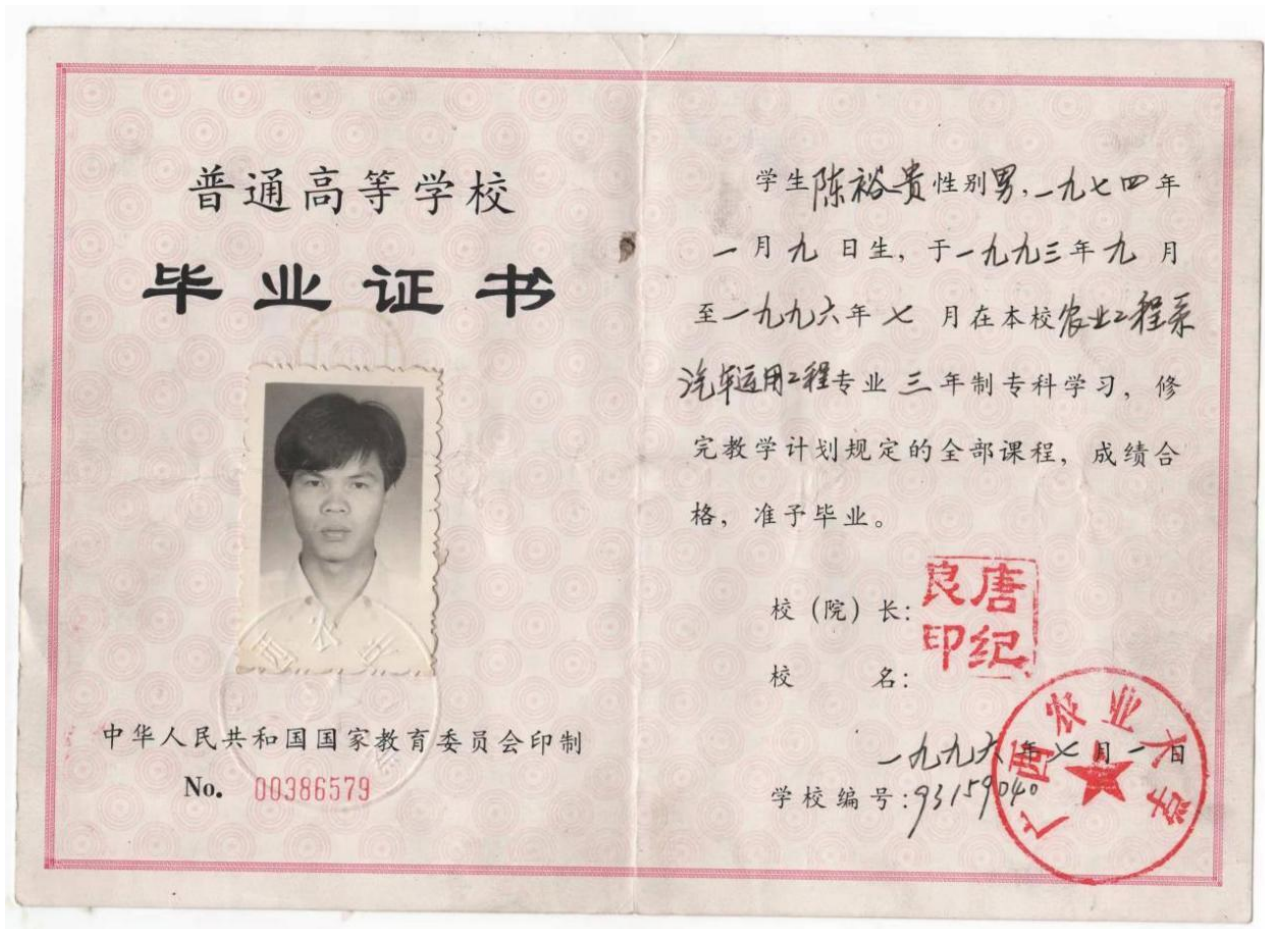 普通高等学校
毕业证书
中华人民共和国国家教育委员会印制
No. 00386579
学生陈裕贵性别男,一九七四年
一月九日生，于一九九三年九月
至一九九六年七月在本校农业工程系
汽车运用工程专业三年制专科学习，修
完教学计划规定的全部课程，成绩合
格，准予毕业。
校（院）长：
唐纪良印
校名：
广西农业大学
一九九六年七月一日
学校编号：93159040